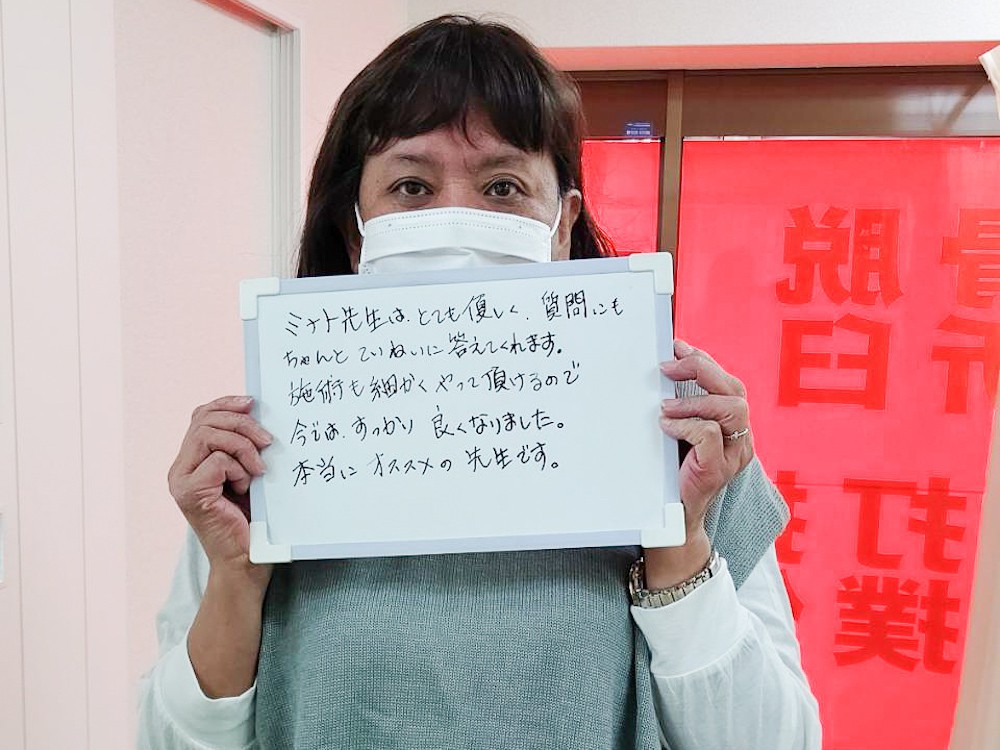 ミナト先生は、とても優しく、質問にも
ちゃんとていねいに答えてくれます。
施術も細かくやって頂けるので
今では、すっかり良くなりました。
本当にオススメの先生です。
骨折
脱臼
打撲